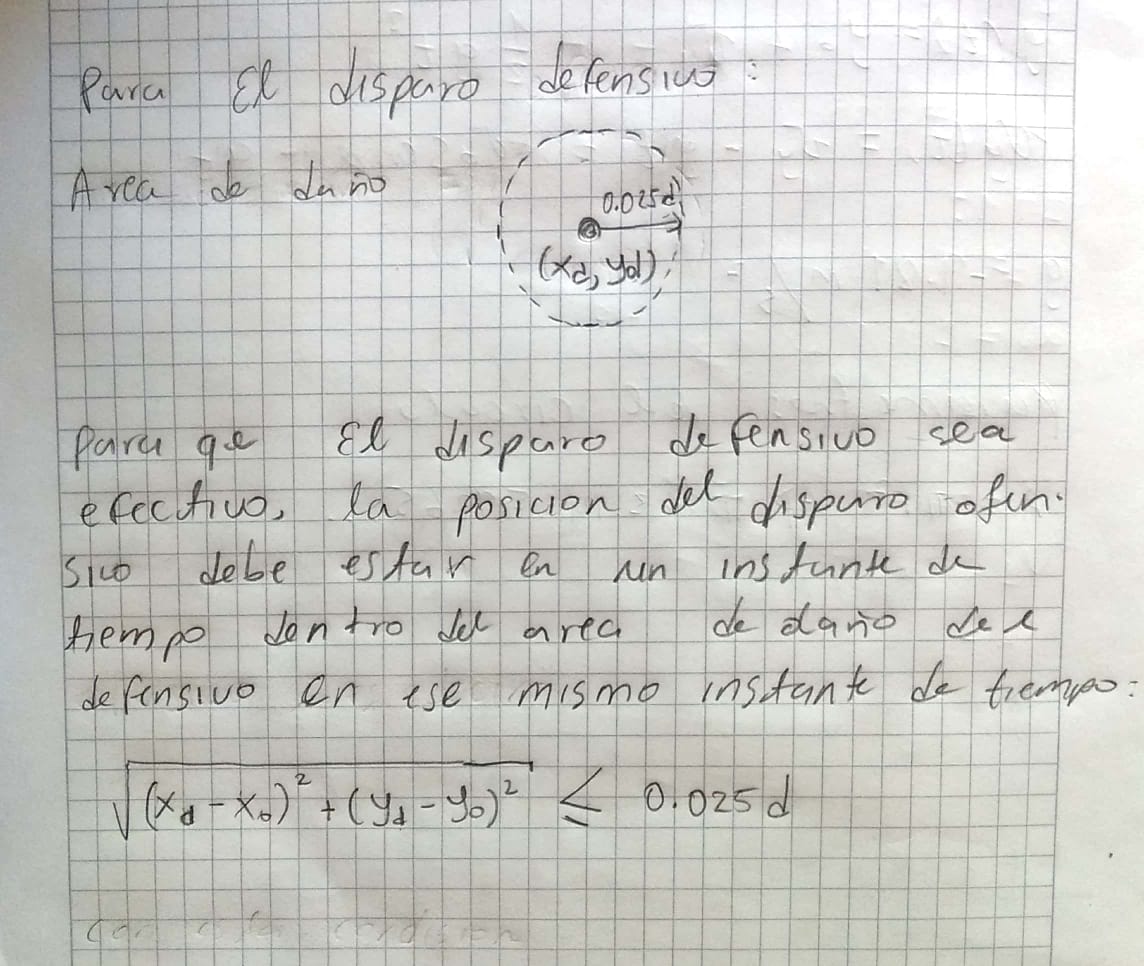 Para El disparo defensivo:
Area de daño
0.025d
(xd, yd)
Para que El disparo defensivo sea
efectivo, la posicion del disparo ofen-
sivo debe estar en un instante de
tiempo dentro del area de daño del
defensivo en ese mismo instante de tiempo:
√(xd - xo)² + (yd - yo)² ≤ 0.025d